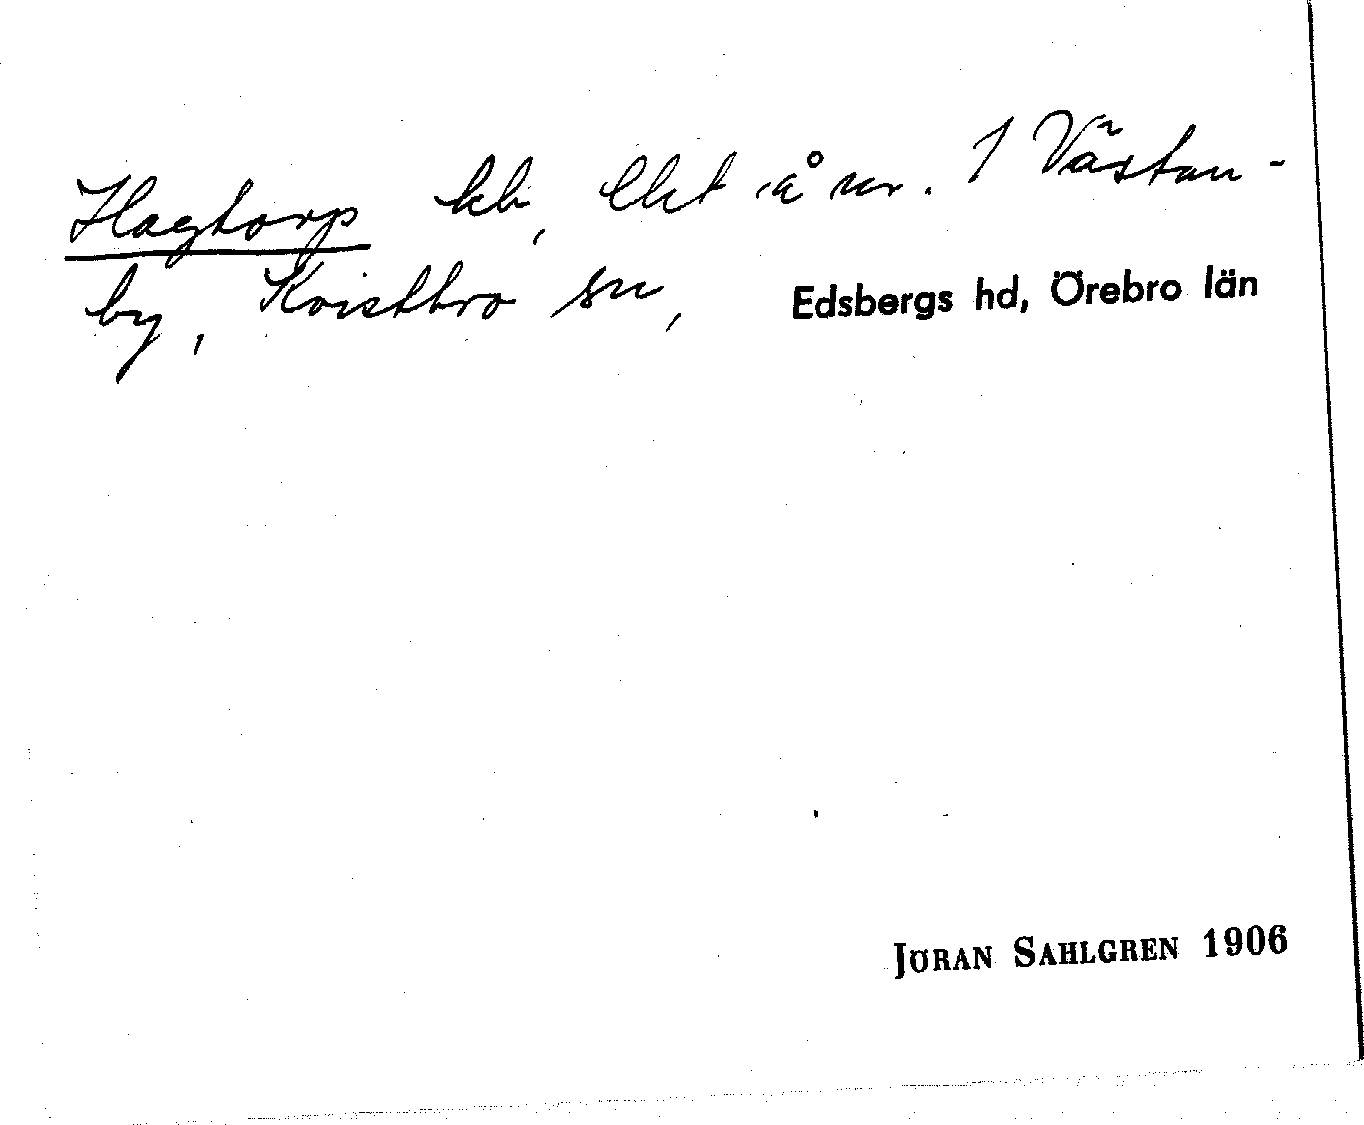 Hagtorp kb, Ekt å nr. 1 Västan-
by, Kvistbro sn, Edsbergs hd, Örebro län
JÖRAN SAHLGREN 1906